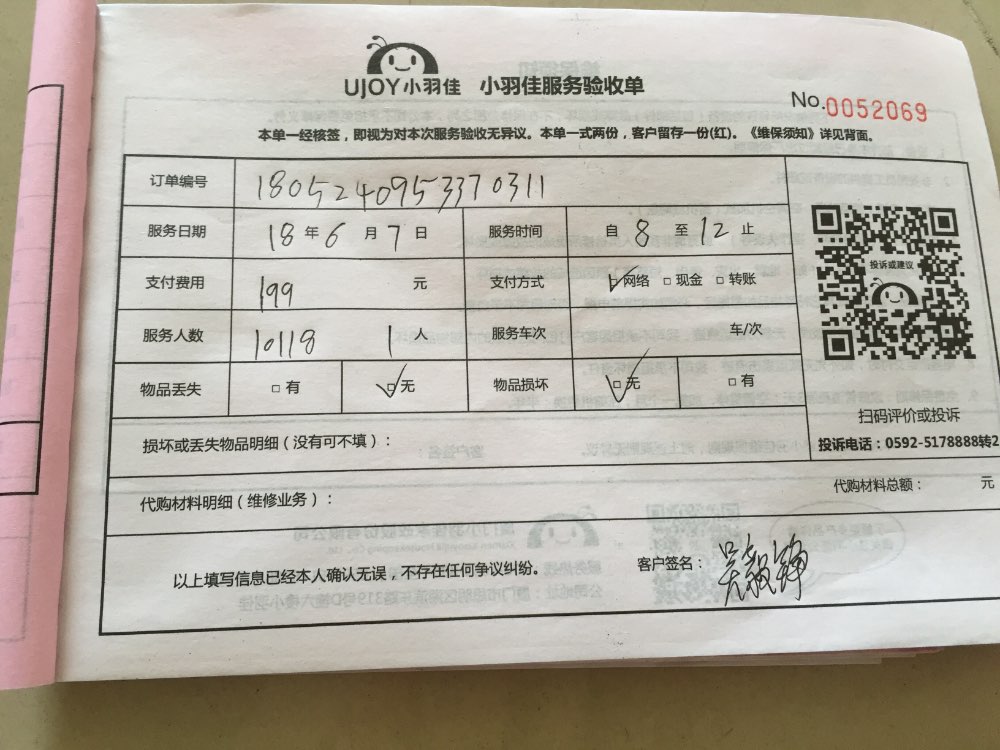 UJOY小羽佳 小羽佳服务验收单
No.0052069
本单一经核签，即视为对本次服务验收无异议。本单一式两份，客户留存一份(红)。《维保须知》详见背面。
订单编号 1805240953370311
服务日期 18 年 6 月 7 日 服务时间 自 8 至 12 止
投诉或建议
支付费用 199 元 支付方式 □网络 □现金 □转账
服务人数 10118 1 人 服务车次 车/次
物品丢失 □有 □无 物品损坏 □无 □有
扫码评价或投诉
损坏或丢失物品明细（没有可不填）：
投诉电话：0592-5178888转2
代购材料明细（维修业务）：
代购材料总额： 元
以上填写信息已经本人确认无误，不存在任何争议纠纷。 客户签名：